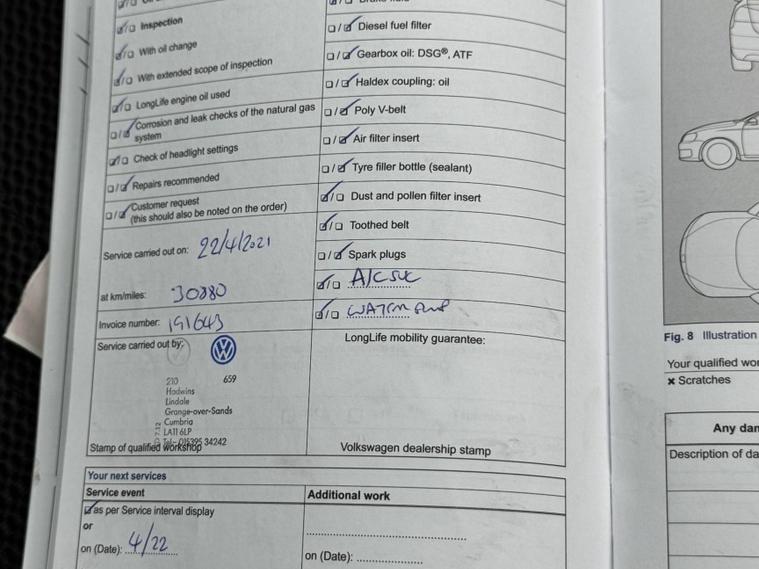 Inspection
With oil change
With extended scope of inspection
LongLife engine oil used
Corrosion and leak checks of the natural gas
system
Check of headlight settings
Repairs recommended
Customer request
(this should also be noted on the order)
Service carried out on: 22/4/2021
at km/miles: 30880
Invoice number: 191643
Service carried out by:
210 659
Hadwins
Lindale
Grange-over-Sands
Cumbria
LA11 6LP
Tel: 015395 34242
Stamp of qualified workshop
Diesel fuel filter
Gearbox oil: DSG®, ATF
Haldex coupling: oil
Poly V-belt
Air filter insert
Tyre filler bottle (sealant)
Dust and pollen filter insert
Toothed belt
Spark plugs
A/C SVC
WATER PUMP
LongLife mobility guarantee:
Volkswagen dealership stamp
Your next services
Service event
Additional work
as per Service interval display
or
on (Date): 4/22
on (Date):
Fig. 8 Illustration
Your qualified
× Scratches
Any
Description of